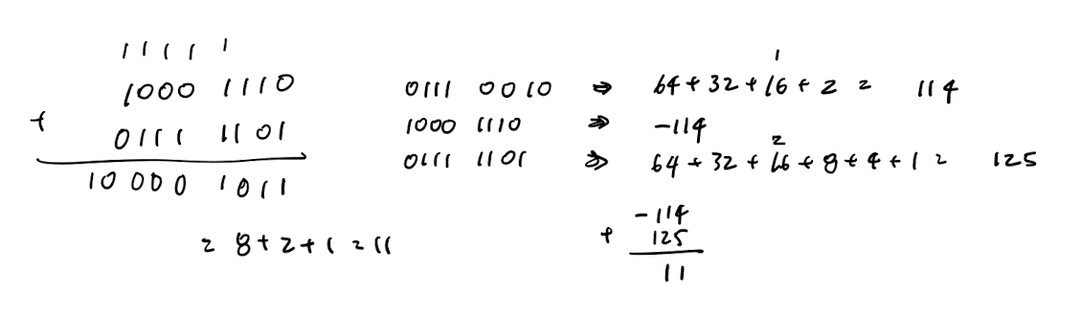 1111 1
1000 1110
+ 0111 1101
10000 1011
= 8+2+1=11
0111 0010 ⇒ 64+32+16+2 = 114
1000 1110 ⇒ -114
0111 1101 ⇒ 64+32+16+8+4+1 = 125
1
2
-114
+ 125
11